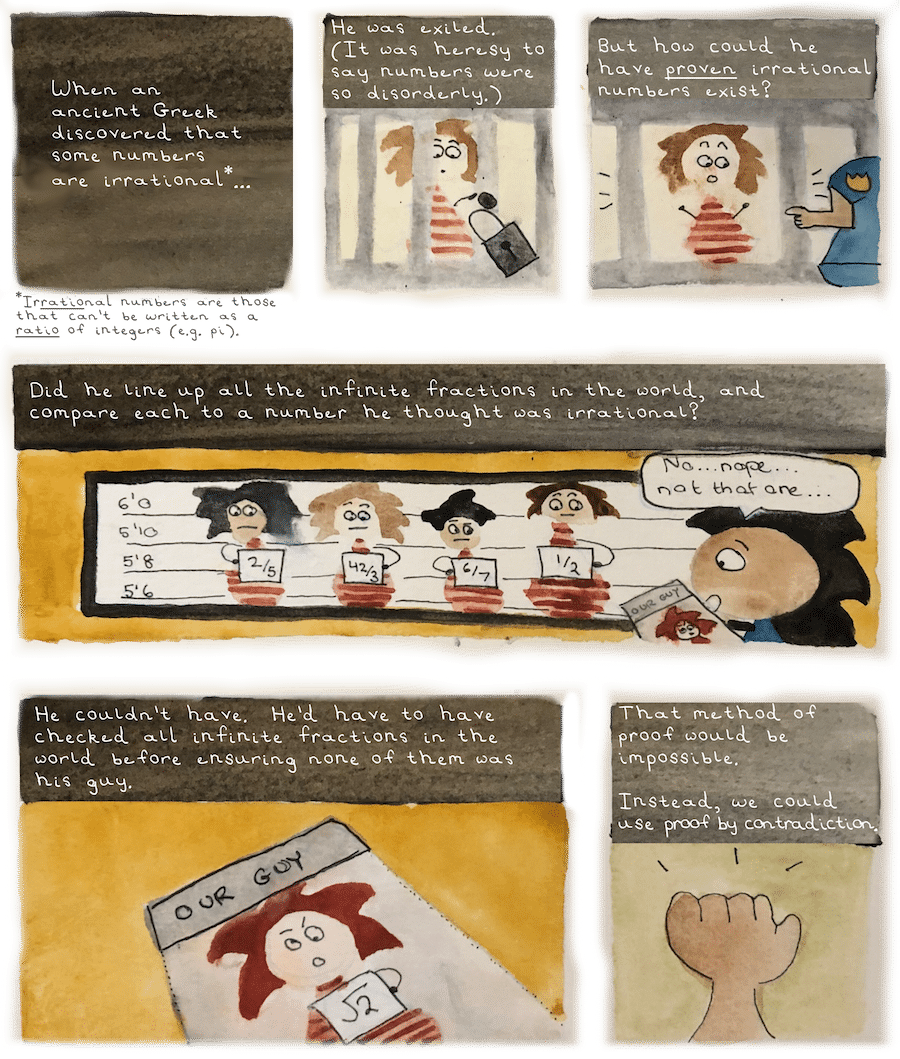 When an
ancient Greek
discovered that
some numbers
are irrational*...
*Irrational numbers are those
that can't be written as a
ratio of integers (e.g. pi).
He was exiled.
(It was heresy to
say numbers were
so disorderly.)
But how could he
have proven irrational
numbers exist?
Did he line up all the infinite fractions in the world, and
compare each to a number he thought was irrational?
No...nope...
not that one...
6'0
5'10
5'8
5'6
2/5
42/3
6/7
1/2
OUR GUY
He couldn't have. He'd have to have
checked all infinite fractions in the
world before ensuring none of them was
his guy.
OUR GUY
√2
That method of
proof would be
impossible.
Instead, we could
use proof by contradiction.